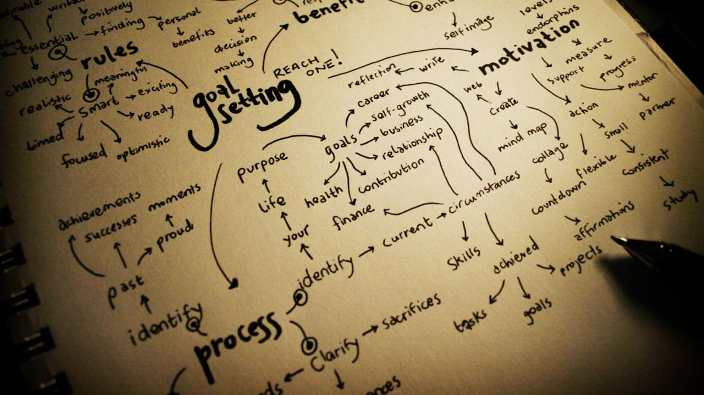 positively
personal
better
benefits
essential
finding
benefits
decision
making
self image
levels
endorphins
rules
challenging
meaningful
realistic
smart
exciting
ready
timed
focused
optimistic
goal
setting
REACH
ONE!
motivation
reflection
write
web
support
measure
progress
mentor
partner
career
self-growth
business
goals
relationship
contribution
health
finance
create
mind map
collage
action
small
flexible
consistent
study
countdown
affirmations
projects
purpose
life
your
identify
current
circumstances
skills
achieved
tasks
goals
achievements
successes
moments
proud
past
identify
process
Clarify
sacrifices